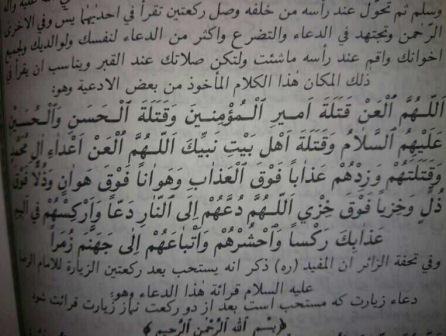 وسلم ثم تحوّل عند رأسه من خلفه وصل ركعتين تقرأ في احديهما يس وفي الاخرى
الرّحمن وتجتهد في الدعاء والتضرع واكثر من الدعاء لنفسك ولوالديك ولجميع
اخوانك واقم عند رأسه ماشئت ولتكن صلاتك عند القبر ويناسب ان يقرأ في
ذلك المكان هٰذا الكلام المأخوذ من بعض الادعية وهو:
اَللّٰهُمَّ الْعَنْ قَتَلَةَ اَميرِ الْمُؤْمِنينَ وَقَتَلَةَ الْحَسَنِ وَالْحُسَيْنِ
عَلَيْهِمُ السَّلامُ وَقَتَلَةَ اَهْلِ بَيْتِ نَبِيِّكَ اَللّٰهُمَّ الْعَنْ اَعْداءَ اٰلِ مُحَمَّدٍ
وَقَتَلَتَهُمْ وَزِدْهُمْ عَذاباً فَوْقَ الْعَذابِ وَهَواناً فَوْقَ هَوانٍ وَذُلاًّ فَوْقَ
ذُلٍّ وَخِزْياً فَوْقَ خِزْيٍ اَللّٰهُمَّ دُعَّهُمْ اِلَى النّارِ دَعّاً وَاَرْكِسْهُمْ في اَليمِ
عَذابِكَ رَكْساً وَاحْشُرْهُمْ وَاَتْباعَهُمْ اِلٰى جَهَنَّمَ زُمَراً
وفي تحفة الزائر ان المفيد (ره) ذكر انه يستحب بعد ركعتين الزيارة للامام الرضا
عليه السلام قرائة هٰذا الدعاء وهو:
دعاء زيارت كه مستحب است بعد از دو ركعت نماز زيارت قرائت شود
﴿بِسْمِ اللّٰهِ الرَّحْمٰنِ الرَّحيمِ﴾